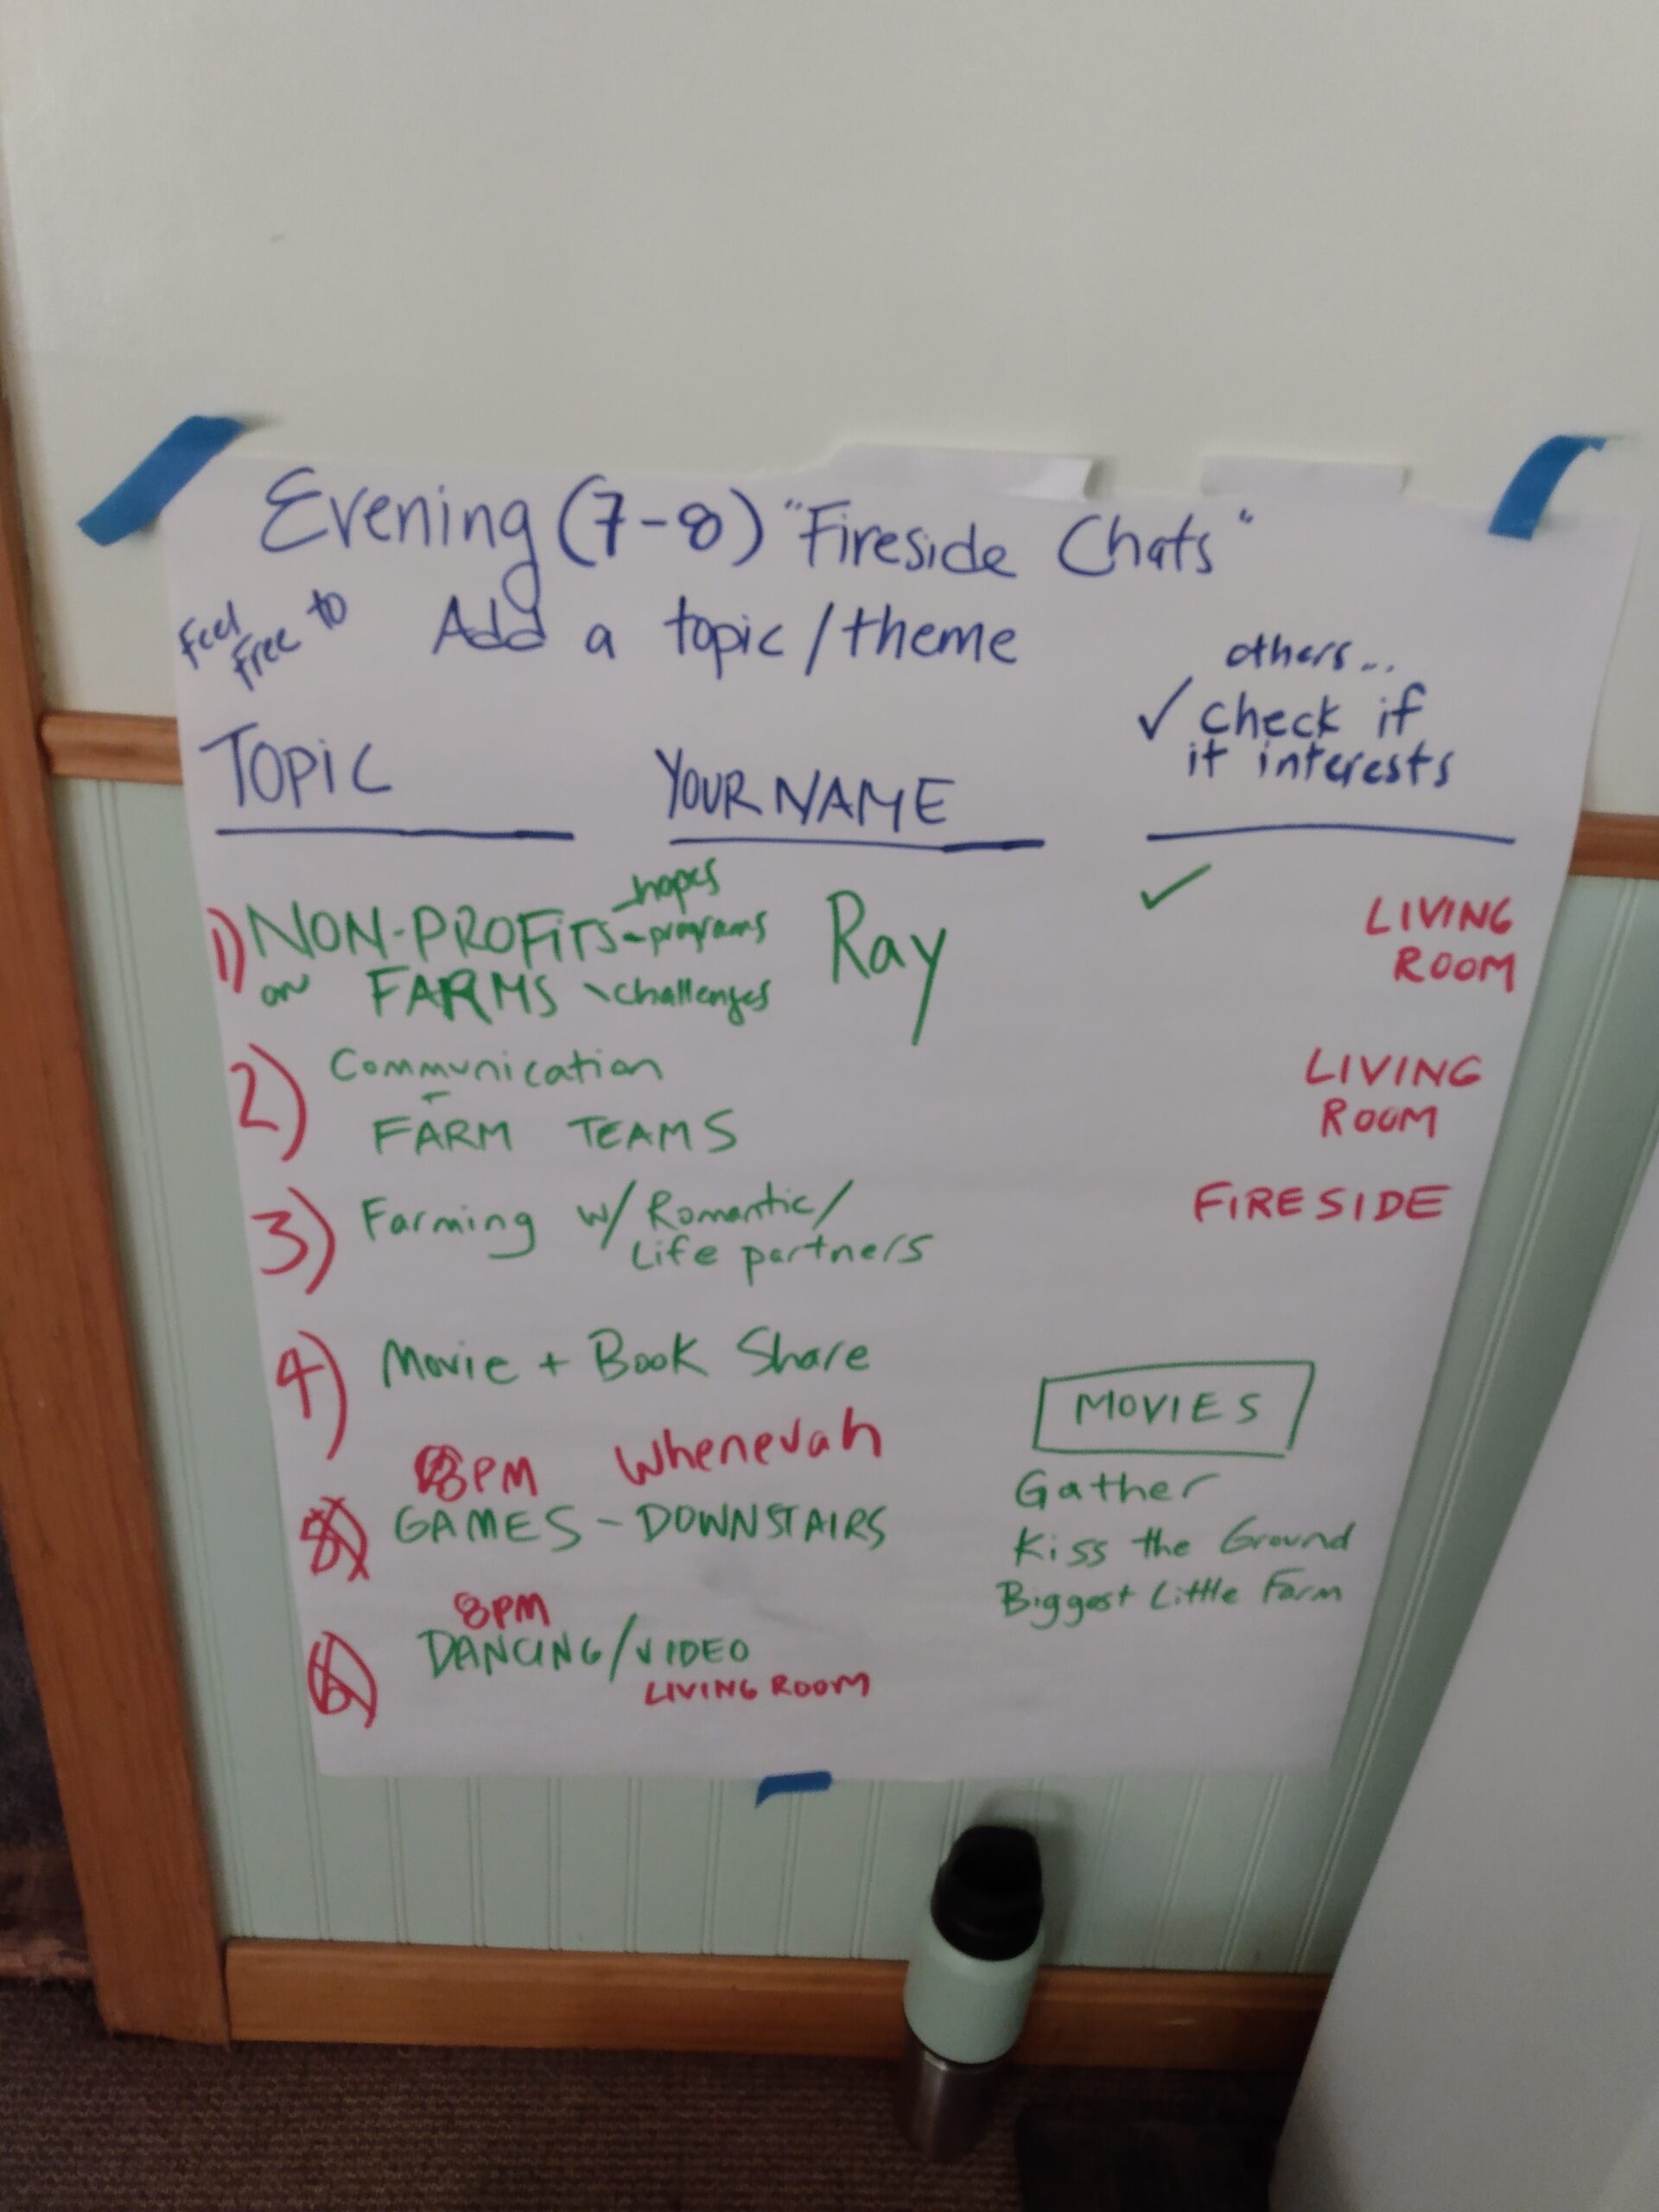 Evening (7-8) "Fireside Chats"
Feel free to Add a topic/theme
others...
✓ check if
it interests
TOPIC YOUR NAME
1) NON-PROFITS - hopes
- programs
on FARMS - challenges
Ray ✓ LIVING
ROOM
2) Communication
FARM TEAMS
LIVING
ROOM
3) Farming w/ Romantic/
Life partners
FIRESIDE
4) Movie + Book Share
8PM Whenevah
GAMES - DOWNSTAIRS
8PM
DANCING/VIDEO
LIVING ROOM
MOVIES
Gather
Kiss the Ground
Biggest Little Farm